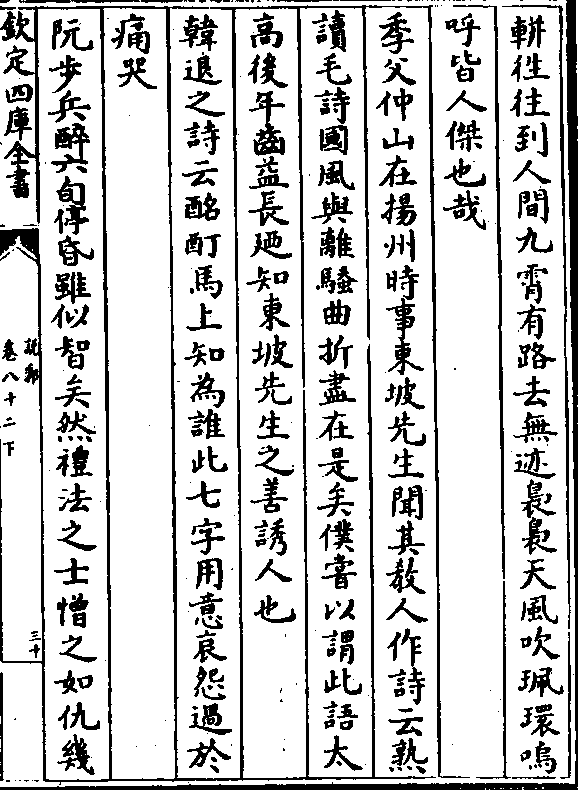 軿徃往到人間九霄有路去無迹裊裊天風吹珮環嗚
呼皆人傑也哉
季父仲山在揚州時事東坡先生聞其教人作詩云熟
讀毛詩國風與離騷曲折盡在是矣僕嘗以謂此語太
高後年齒益長廼知東坡先生之善誘人也
韓退之詩云酩酊馬上知為誰此七字用意哀怨過於
痛哭
阮步兵醉六旬停昏雖似智矣然禮法之士憎之如仇幾
欽定四庫全書
說郛
卷八十二下
三十